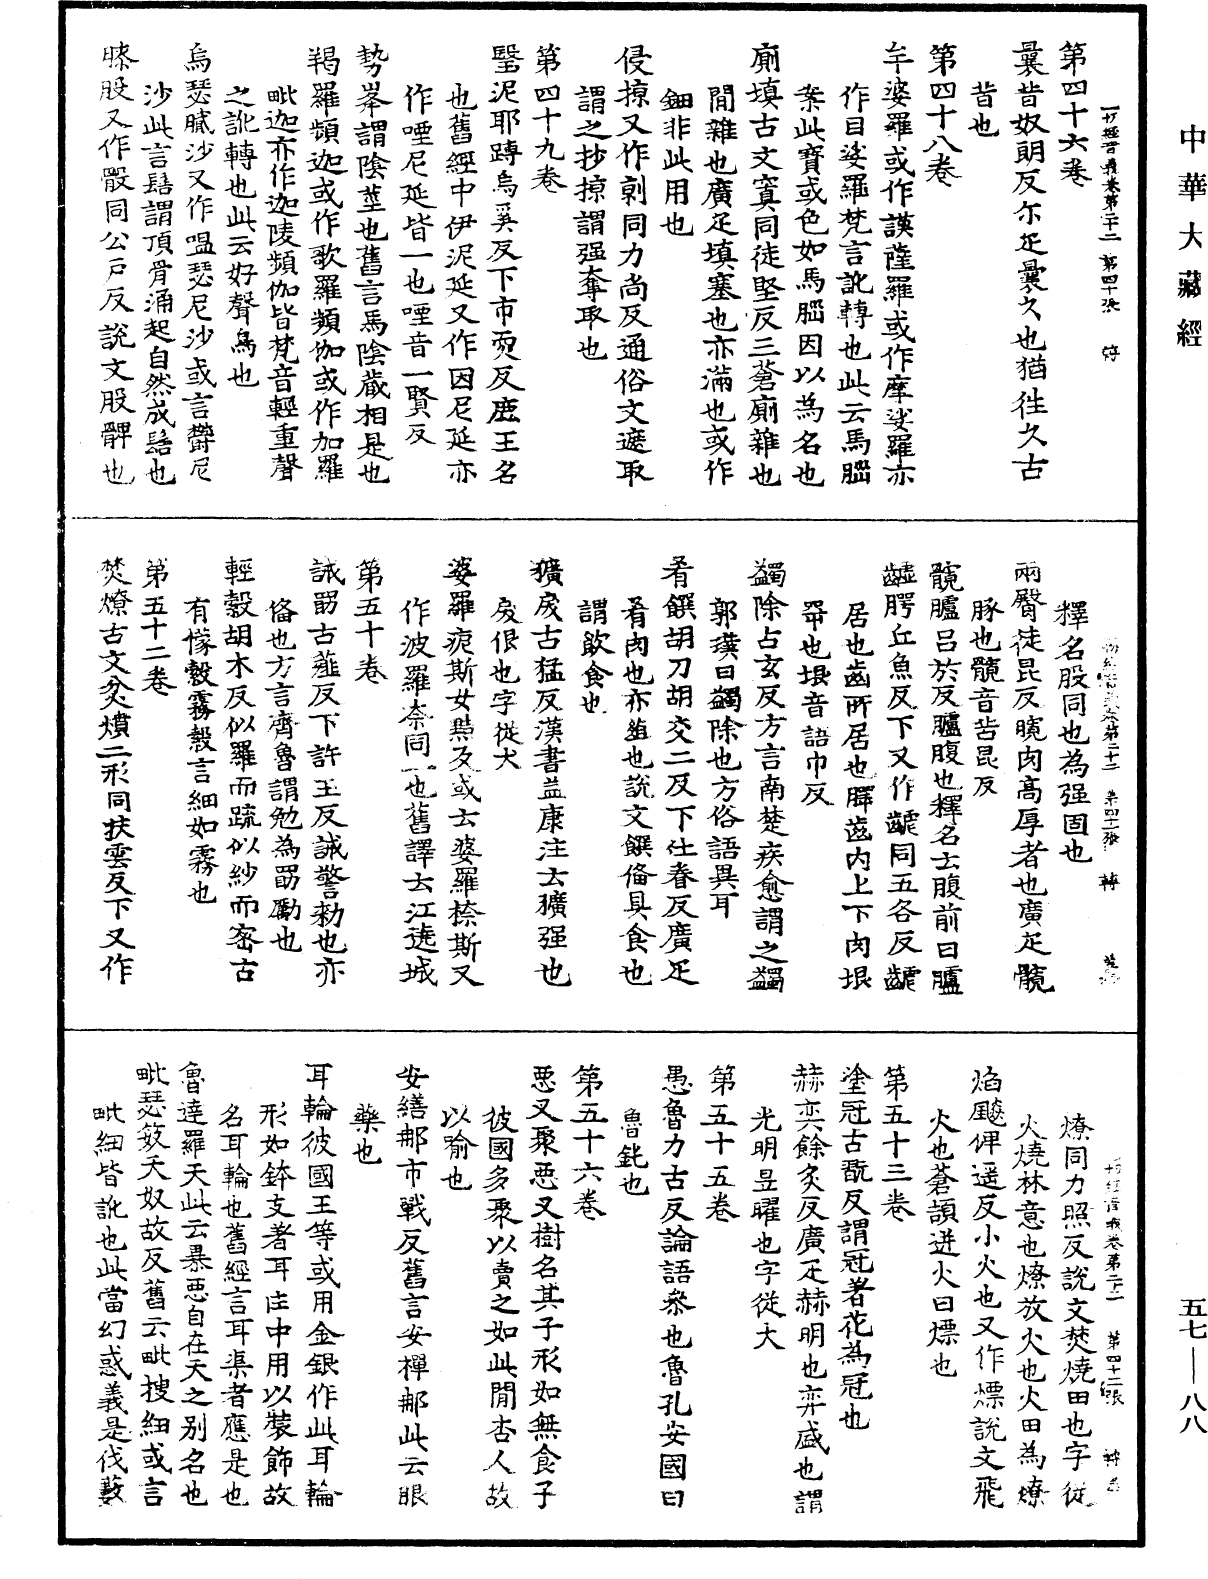 中華大藏經
一切經音義卷第二十二 第四十張
第四十六卷
曩昔奴朗反尔疋曩久也猶往久古
昔也
第四十八卷
牟婆羅或作謨薩羅或作摩娑羅亦
作目娑羅梵言訛轉也此云馬腦
案此寶或色如馬腦因以為名也
廁填古文窴同徒堅反三蒼廁雜也
間雜也廣疋填塞也亦滿也或作
鈿非此用也
侵掠又作剠同力尚反通俗文遮取
謂之抄掠謂强奪取也
第四十九卷
瑿泥耶蹲烏奚反下市耎反鹿王名
也舊經中伊泥延又作因尼延亦
作堙尼延皆一也堙音一賢反
勢峯謂陰莖也舊言馬陰藏相是也
羯羅頻迦或作歌羅頻伽或作加羅
毗迦亦作迦陵頻伽皆梵音輕重聲
之訛轉也此云好聲鳥也
烏瑟膩沙又作嗢瑟尼沙或言欝尼
沙此言髻謂頂骨涌起自然成髻也
膝股又作骰同公戶反說文股髀也
釋名股同也為强固也
兩臀徒昆反臗肉高厚者也廣疋髖
豚也髖音苦昆反
髖臚呂於反臚腹也釋名云腹前曰臚
齲腭丘魚反下又作齶同五各反齶
居也齒所居也腭齒內上下肉垠
咢也垠音語巾反
蠲除占玄反方言南楚疾愈謂之蠲
郭璞曰蠲除也方俗語異耳
肴饌胡刀胡交二反下仕眷反廣疋
肴肉也亦葅也說文饌俻具食也
謂飲食也
獷戾古猛反漢書孟康注云獷强也
戾佷也字從犬
婆羅痆斯女黠反或云婆羅㮈斯又
作波羅奈同一也舊譯云江遶城
第五十卷
誡勗古薤反下許玉反誡警勑也亦
俻也方言齊魯謂勉為勗勵也
輕縠胡木反似羅而疏似紗而密古
有㡆縠霧縠言細如霧也
第五十二卷
焚燎古文炃燌二形同扶雲反下又作
燎同力照反說文焚燒田也字從
火燒林意也燎放火也火田為燎
焰飈俾遥反小火也又作熛說文飛
火也蒼頡迸火曰熛也
第五十三卷
塗冠古翫反謂冠著花為冠也
赫奕餘炙反廣疋赫明也弈盛也謂
光明昱曜也字從大
第五十五卷
愚魯力古反論語叅也魯孔安國曰
魯鈍也
第五十六卷
惡叉聚惡叉樹名其子形如無食子
彼國多聚以賣之如此間杏人故
以喻也
安繕那市戰反舊言安禪那此云眼
藥也
耳輪彼國王等或用金銀作此耳輪
形如鉢支著耳㽵中用以裝飾故
名耳輪也舊經言耳渠者應是也
魯達羅天此云暴惡自在天之別名也
毗瑟笯天奴故反舊云毗搜紐或言
毗紐皆訛也此當幻惑義是伐藪
五七—八八